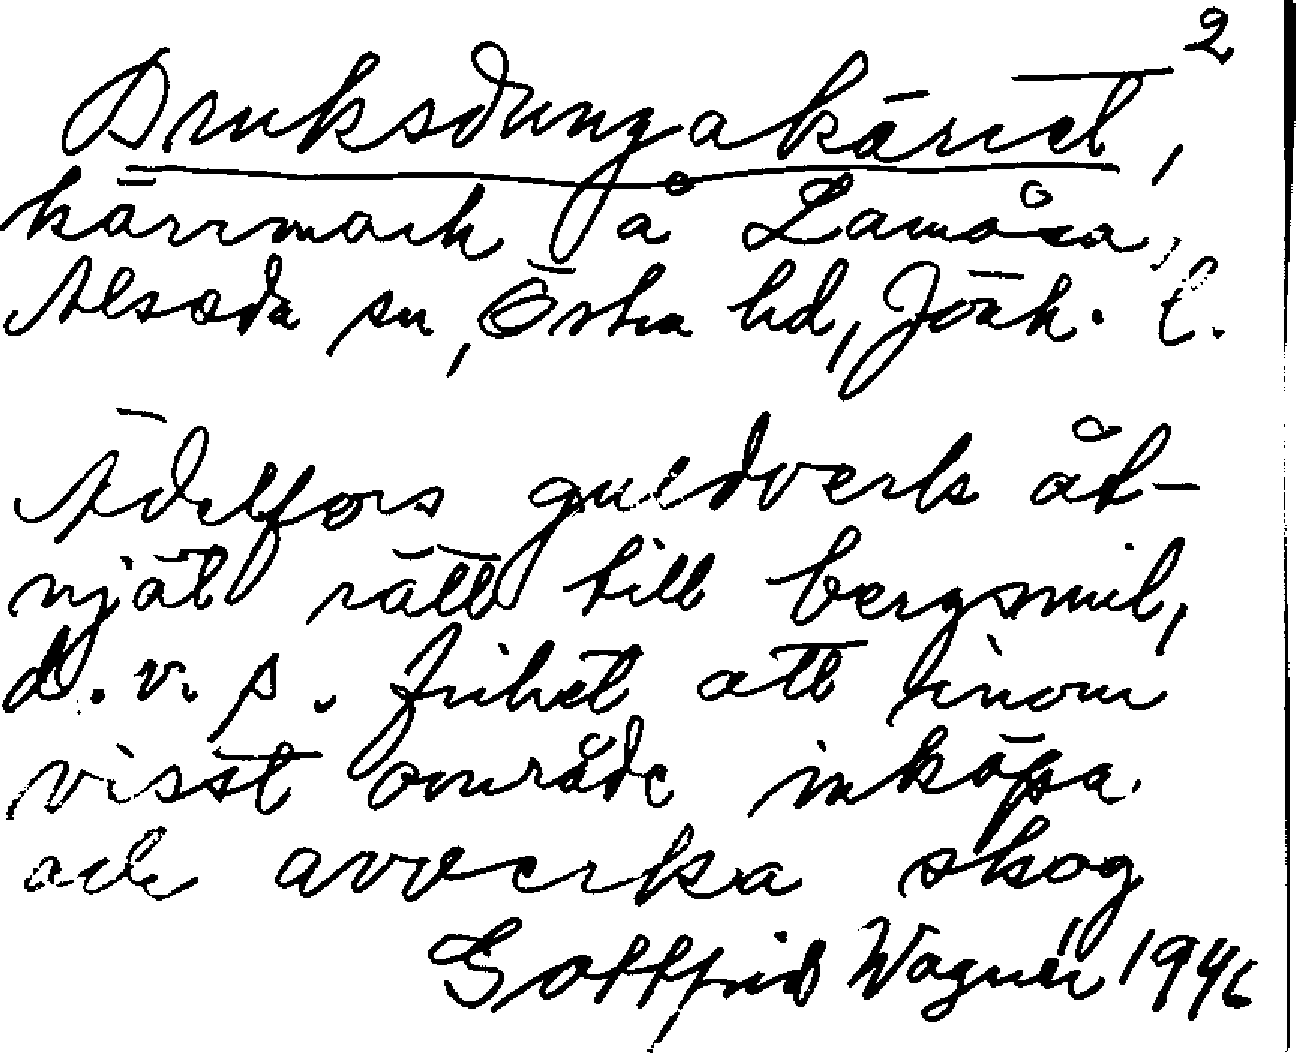 2
Bruksdungakärret,
kärrmark å Lamåsa,
Alseda sn, Östra hd, Jönk. l.
Ädelfors guldverk åt-
njöt rätt till bergsmil,
d.v.s. frihet att inom
visst område inköpa
och avverka skog
Gottfrid Wagnér 1946